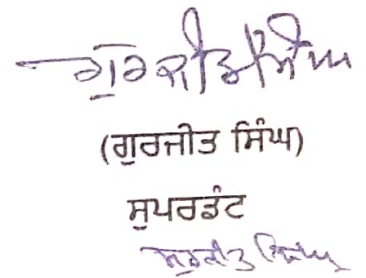 ਗੁਰਜੀਤ ਸਿੰਘ
(ਗੁਰਜੀਤ ਸਿੰਘ)
ਸੁਪਰਡੰਟ
ਗੁਰਜੀਤ ਸਿੰਘ